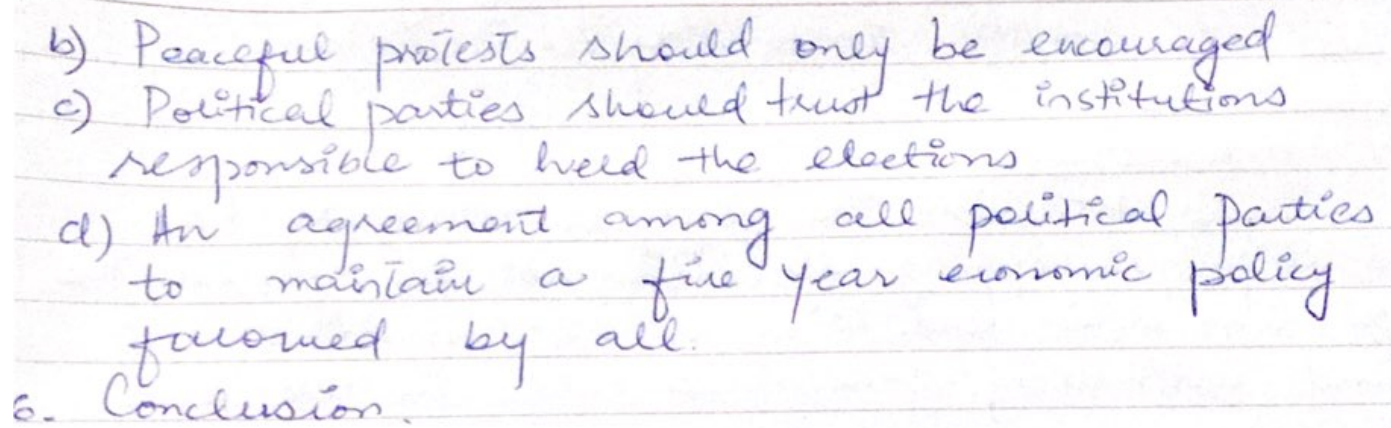 b) Peaceful protests should only be encouraged
c) Political parties should trust the institutions
responsible to held the elections
d) An agreement among all political Parties
to maintain a five year economic policy
favored by all.
6. Conclusion.